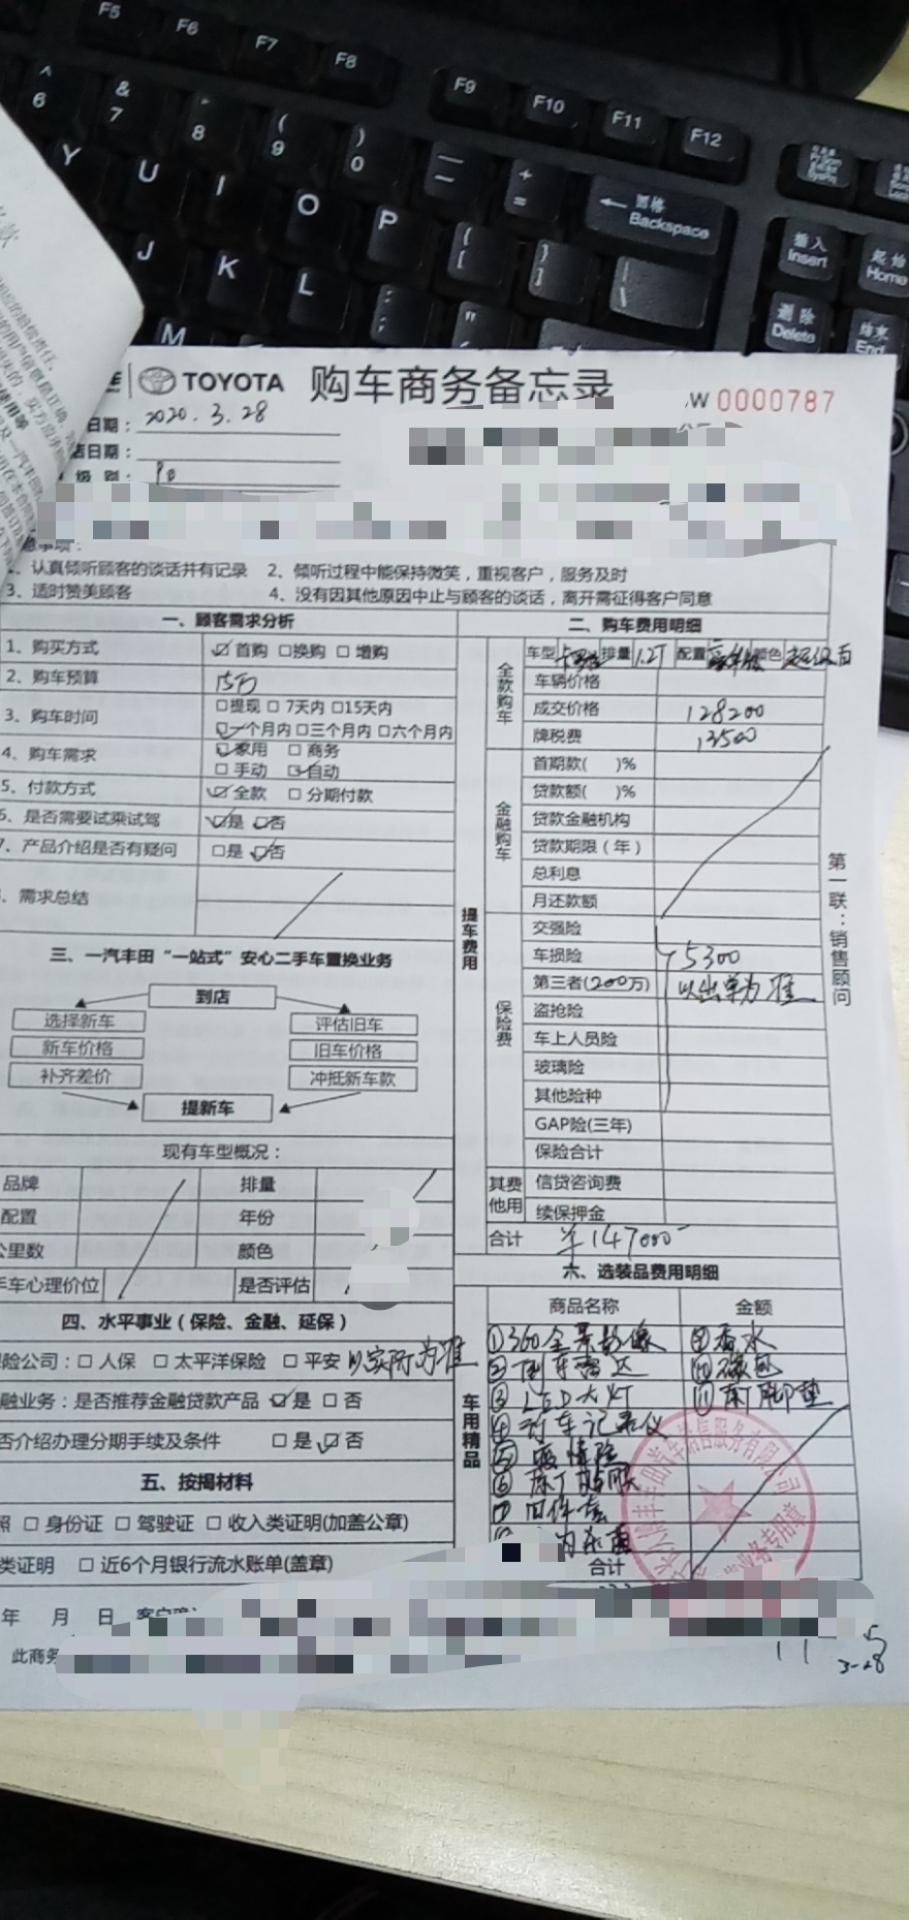 F5
F6
F7
F8
F9
F10
F11
F12
^ 6
& 7
8
( 9
) 0
+ =
回格 Backspace
插入 Insert
起始 Home
删除 Delete
结束 End
Y U I O P
J K L
M
TOYOTA 购车商务备忘录
W 0000787
日期：2020.3.28
店日期：
级别：
1、认真倾听顾客的谈话并有记录 2、倾听过程中能保持微笑，重视客户，服务及时
3、适时赞美顾客 4、没有因其他原因中止与顾客的谈话，离开需征得客户同意
一、顾客需求分析
1、购买方式 ☑首购 □换购 □增购
2、购车预算 15万
3、购车时间 □提现 □7天内 □15天内
☑一个月内 □三个月内 □六个月内
4、购车需求 ☑家用 □商务
□手动 ☑自动
5、付款方式 ☑全款 □分期付款
6、是否需要试乘试驾 ☑是 ☑否
7、产品介绍是否有疑问 □是 ☑否
、需求总结
三、一汽丰田“一站式”安心二手车置换业务
到店
选择新车 评估旧车
新车价格 旧车价格
补齐差价 冲抵新车款
提新车
现有车型概况：
品牌 排量
配置 年份
公里数 颜色
手车心理价位 是否评估
四、水平事业（保险、金融、延保）
险公司：□人保 □太平洋保险 □平安 以实际为准
融业务：是否推荐金融贷款产品 ☑是 □否
否介绍办理分期手续及条件 □是 ☑否
五、按揭材料
照 □身份证 □驾驶证 □收入类证明(加盖公章)
类证明 □近6个月银行流水账单(盖章)
年 月 日
此商务
二、购车费用明细
提车费用
全款购车
车型 卡罗拉 排量 1.2T 配置 颜色 超级白
车辆价格
成交价格 128200
牌税费 13500
金融购车
首期款( )%
贷款额( )%
贷款金融机构
贷款期限（年）
总利息
月还款额
保险费
交强险
车损险 5300
第三者(200万) 以出单为准
盗抢险
车上人员险
玻璃险
其他险种
GAP险(三年)
保险合计
其他费用
信贷咨询费
续保押金
合计 ¥147000
第一联：销售顾问
六、选装品费用明细
车用精品
商品名称 金额
①360全景影像 ⑨香水
②倒车雷达
③LED大灯 ⑪ 脚垫
④行车记录仪
合计
3-28